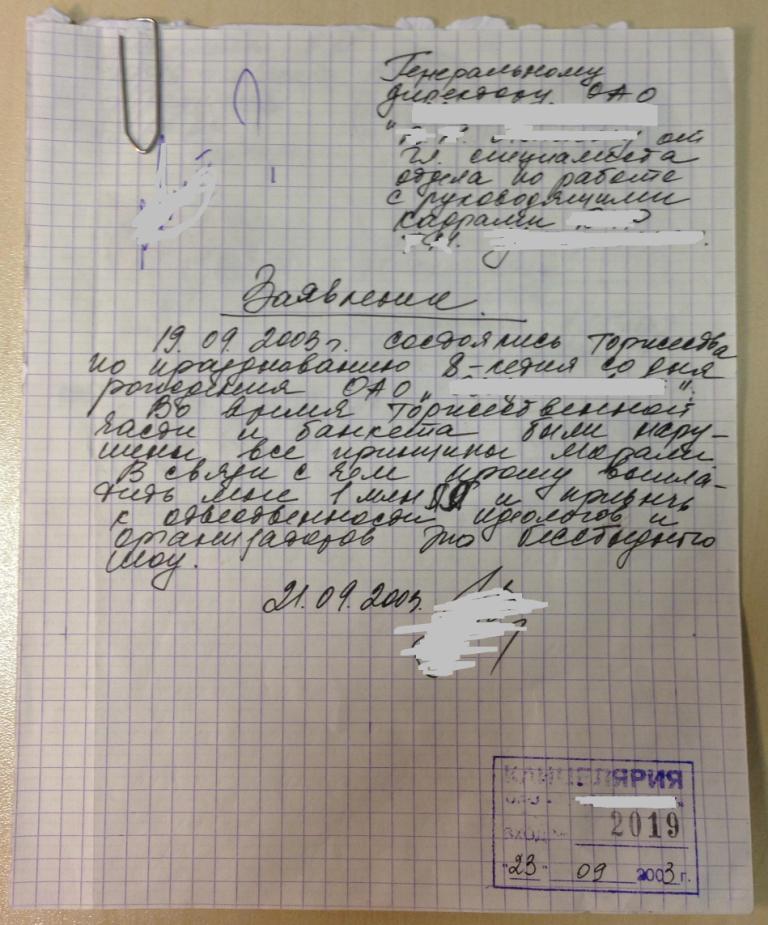 Генеральному
директору ОАО
от
гл. специалиста
отдела по работе
с руководящими
кадрами
Заявление.
19.09.2003г. состоялись торжества
по празднованию 8-летия со дня
рождения ОАО „ ".
Во время торжественной
части и банкета были нару-
шены все принципы морали.
В связи с чем прошу выпла-
тить мне 1 млн и привлечь
к ответственности идеологов и
организаторов это бесстыдного
шоу.
21.09.2003.
КАНЦЕЛЯРИЯ
ОАО „ "
ВХОД № 2019
"23" 09 2003 г.